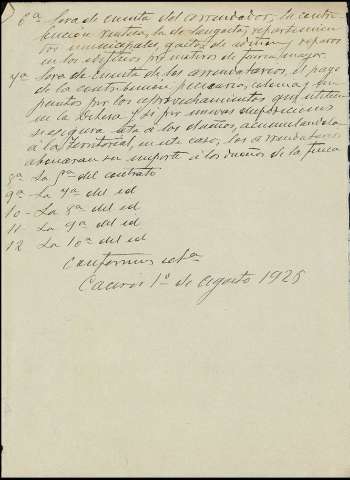 6ª Sera de cuenta del arrendador, la contri-
bución rustica, la de langosta, repartimien
tos municipales, gastos de y reparos
en los edificios por motivos de fuerza mayor.
7ª Sera de cuenta de los arrendatarios, el pago
de la contribucion pecuaria, colonia y im
puestos por los aprovechamientos que utilicen
en la Dehesa y si por nuevas disposiciones
se esta a los dueños, acumulandola
a la territorial, en este caso, los arrendatarios
abonaran su importe a los dueños de la finca
8ª La 5ª del contrato
9ª - La 7ª del id
10 - La 8ª del id
11 - La 9ª del id
12 La 10ª del id
Conformes
Caceres 1º de agosto 1925